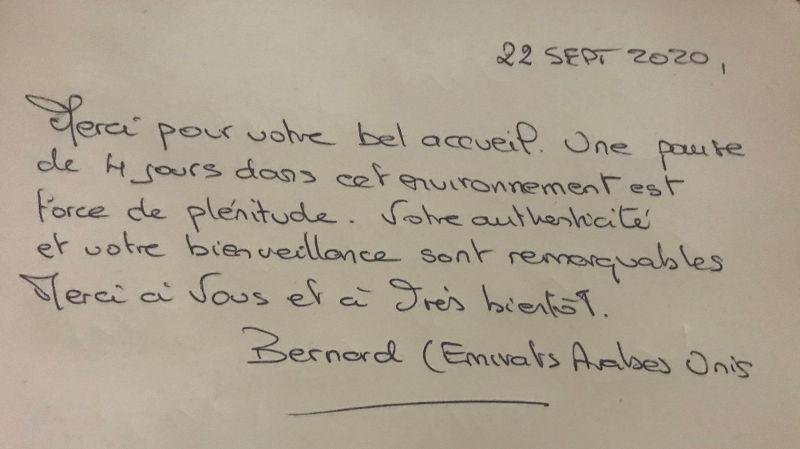 22 SEPT 2020,
Merci pour votre bel accueil. Une pause
de 4 jours dans cet environnement est
force de plénitude. Votre authenticité
et votre bienveillance sont remarquables
Merci à Vous et à Très bientôt.
Bernard (Emirats Arabes Unis